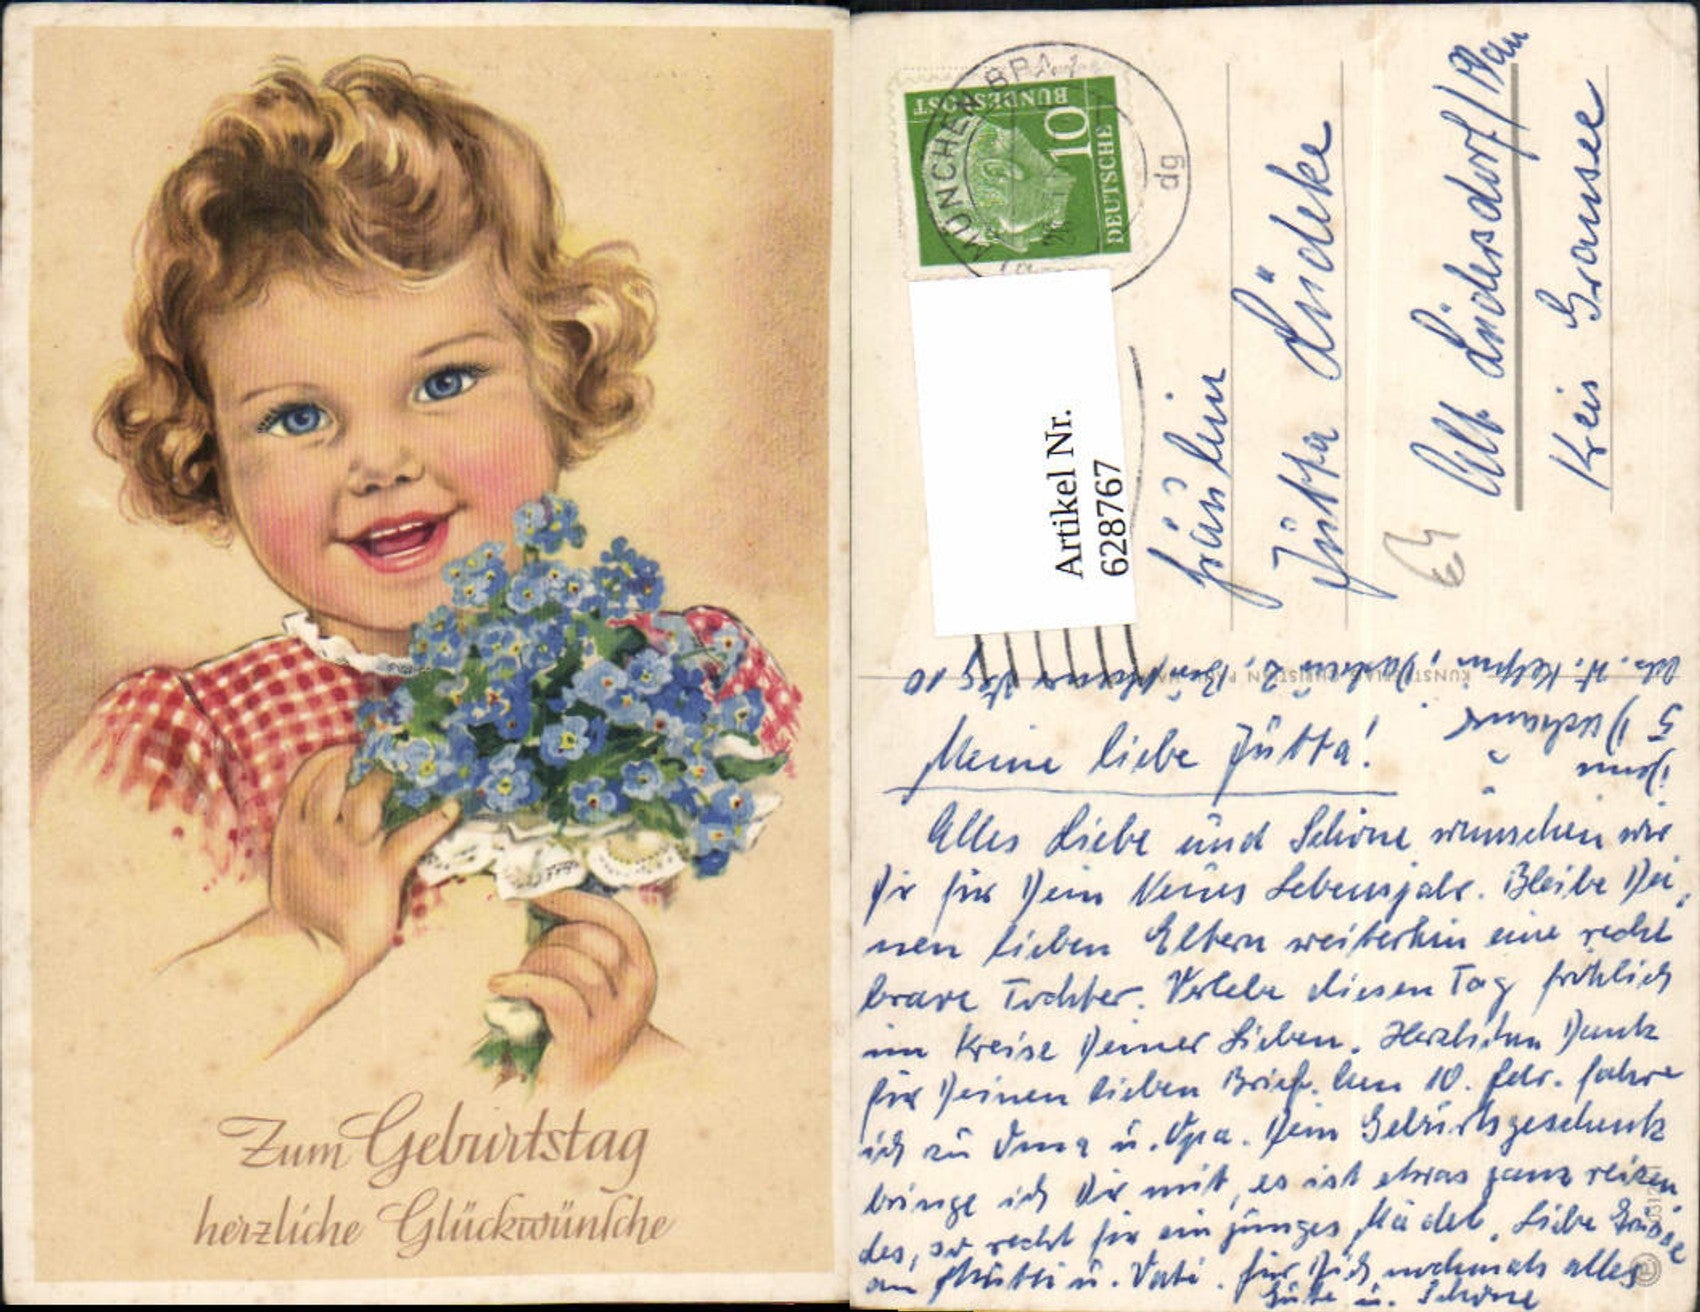 Zum Geburtstag
herzliche Glückwünsche
DEUTSCHE
BUNDESPOST
10
MÜNCHEN BPA 1
dg
Artikel Nr.
628767
Fräulein
Jütta Lüdeke
Alt Lüdersdorf/
Kreis Gransee
KUNSTVERLAG CHRISTIAN
Meine liebe Jütta!
Alles Liebe und Schöne wünschen wir
Dir für Dein Neues Lebensjahr. Bleibe Dei-
nen lieben Eltern weiterhin eine recht
brave Tochter. Verlebe diesen Tag fröhlich
im Kreise Deiner Lieben. Herzlichen Dank
für Deinen lieben Brief. Am 10. Febr. fahre
ich zu Oma u. Opa. Dein Geburtsgeschenk
bringe ich Dir mit, es ist etwas ganz reizen
des, so recht für ein junges Mädel. Liebe Grüße
an Mutti u. Vati. Für Dich nochmals alles
Gute u. Schöne